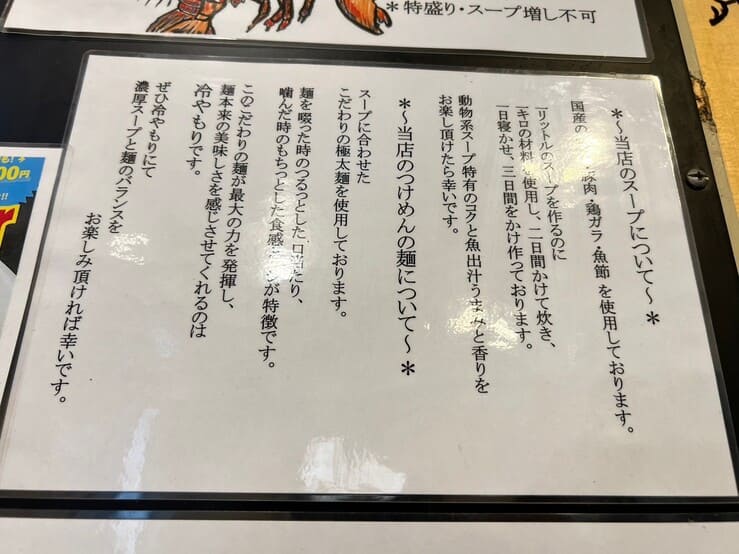 ＊特盛り・スープ増し不可
＊〜当店のスープについて〜＊
国産の豚肉・鶏ガラ・魚節を使用しております。
一リットルのスープを作るのに
一キロの材料を使用し、二日間かけて炊き、
一日寝かせ、三日間をかけ作っております。
動物系スープ特有のコクと魚出汁うまみと香りを
お楽しみ頂けたら幸いです。
＊〜当店のつけめんの麺について〜＊
スープに合わせた
こだわりの極太麺を使用しております。
麺を啜った時のつるっとした口当たり、
噛んだ時のもちっとした食感とコシが特徴です。
このこだわりの麺が最大の力を発揮し、
麺本来の美味しさを感じさせてくれるのは
冷やもりです。
ぜひ冷やもりにて
濃厚スープと麺のバランスを
お楽しみ頂ければ幸いです。
00円